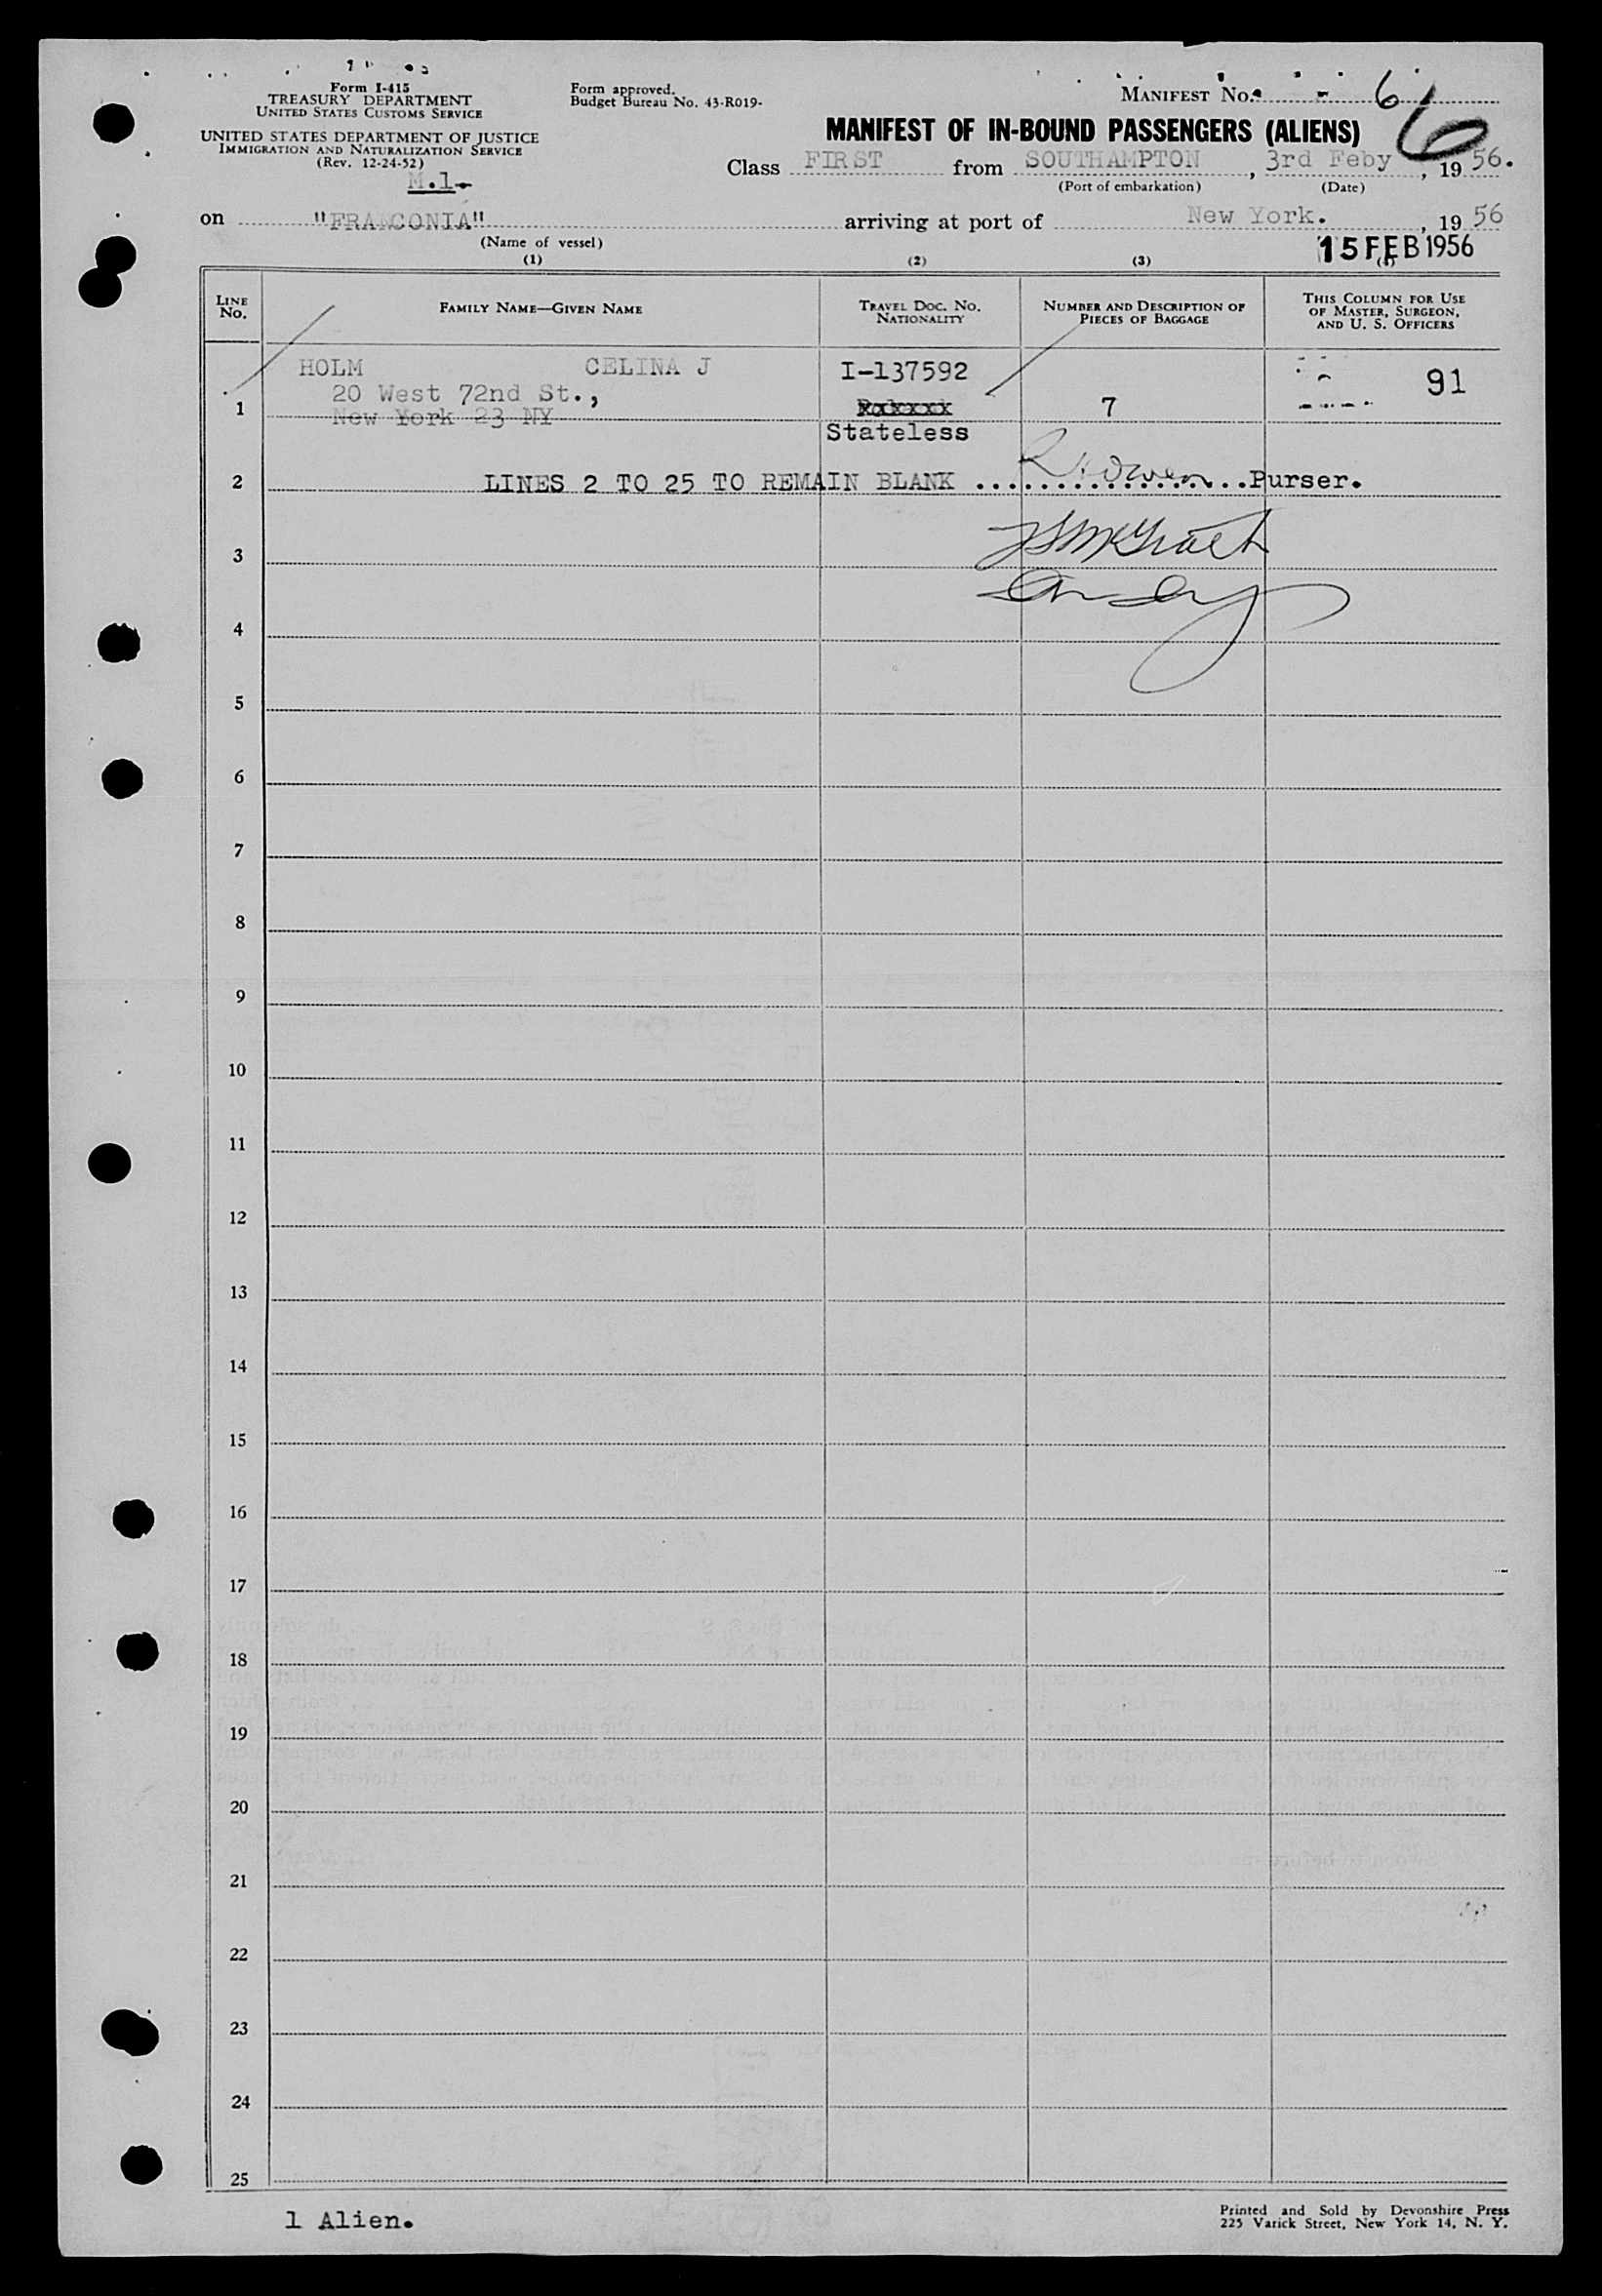 Form I-415
TREASURY DEPARTMENT
UNITED STATES CUSTOMS SERVICE
UNITED STATES DEPARTMENT OF JUSTICE
IMMIGRATION AND NATURALIZATION SERVICE
(Rev. 12-24-52)
M.1-
Form approved.
Budget Bureau No. 43-R019-
MANIFEST NO. - 6
6
MANIFEST OF IN-BOUND PASSENGERS (ALIENS)
Class FIRST from SOUTHAMPTON, 3rd Feby, 1956.
(Port of embarkation) (Date)
on "FRANCONIA" arriving at port of New York., 1956
(Name of vessel)
15 FEB 1956
(1) (2) (3) (4)
LINE NO. FAMILY NAME—GIVEN NAME TRAVEL DOC. NO. NATIONALITY NUMBER AND DESCRIPTION OF PIECES OF BAGGAGE THIS COLUMN FOR USE OF MASTER, SURGEON, AND U. S. OFFICERS
HOLM CELINA J I-137592 91
20 West 72nd St.,
1 New York 23 NY 7
Stateless
2 LINES 2 TO 25 TO REMAIN BLANK ................Purser.
3
4
5
6
7
8
9
10
11
12
13
14
15
16
17
18
19
20
21
22
23
24
25
1 Alien.
Printed and Sold by Devonshire Press
225 Varick Street, New York 14, N. Y.